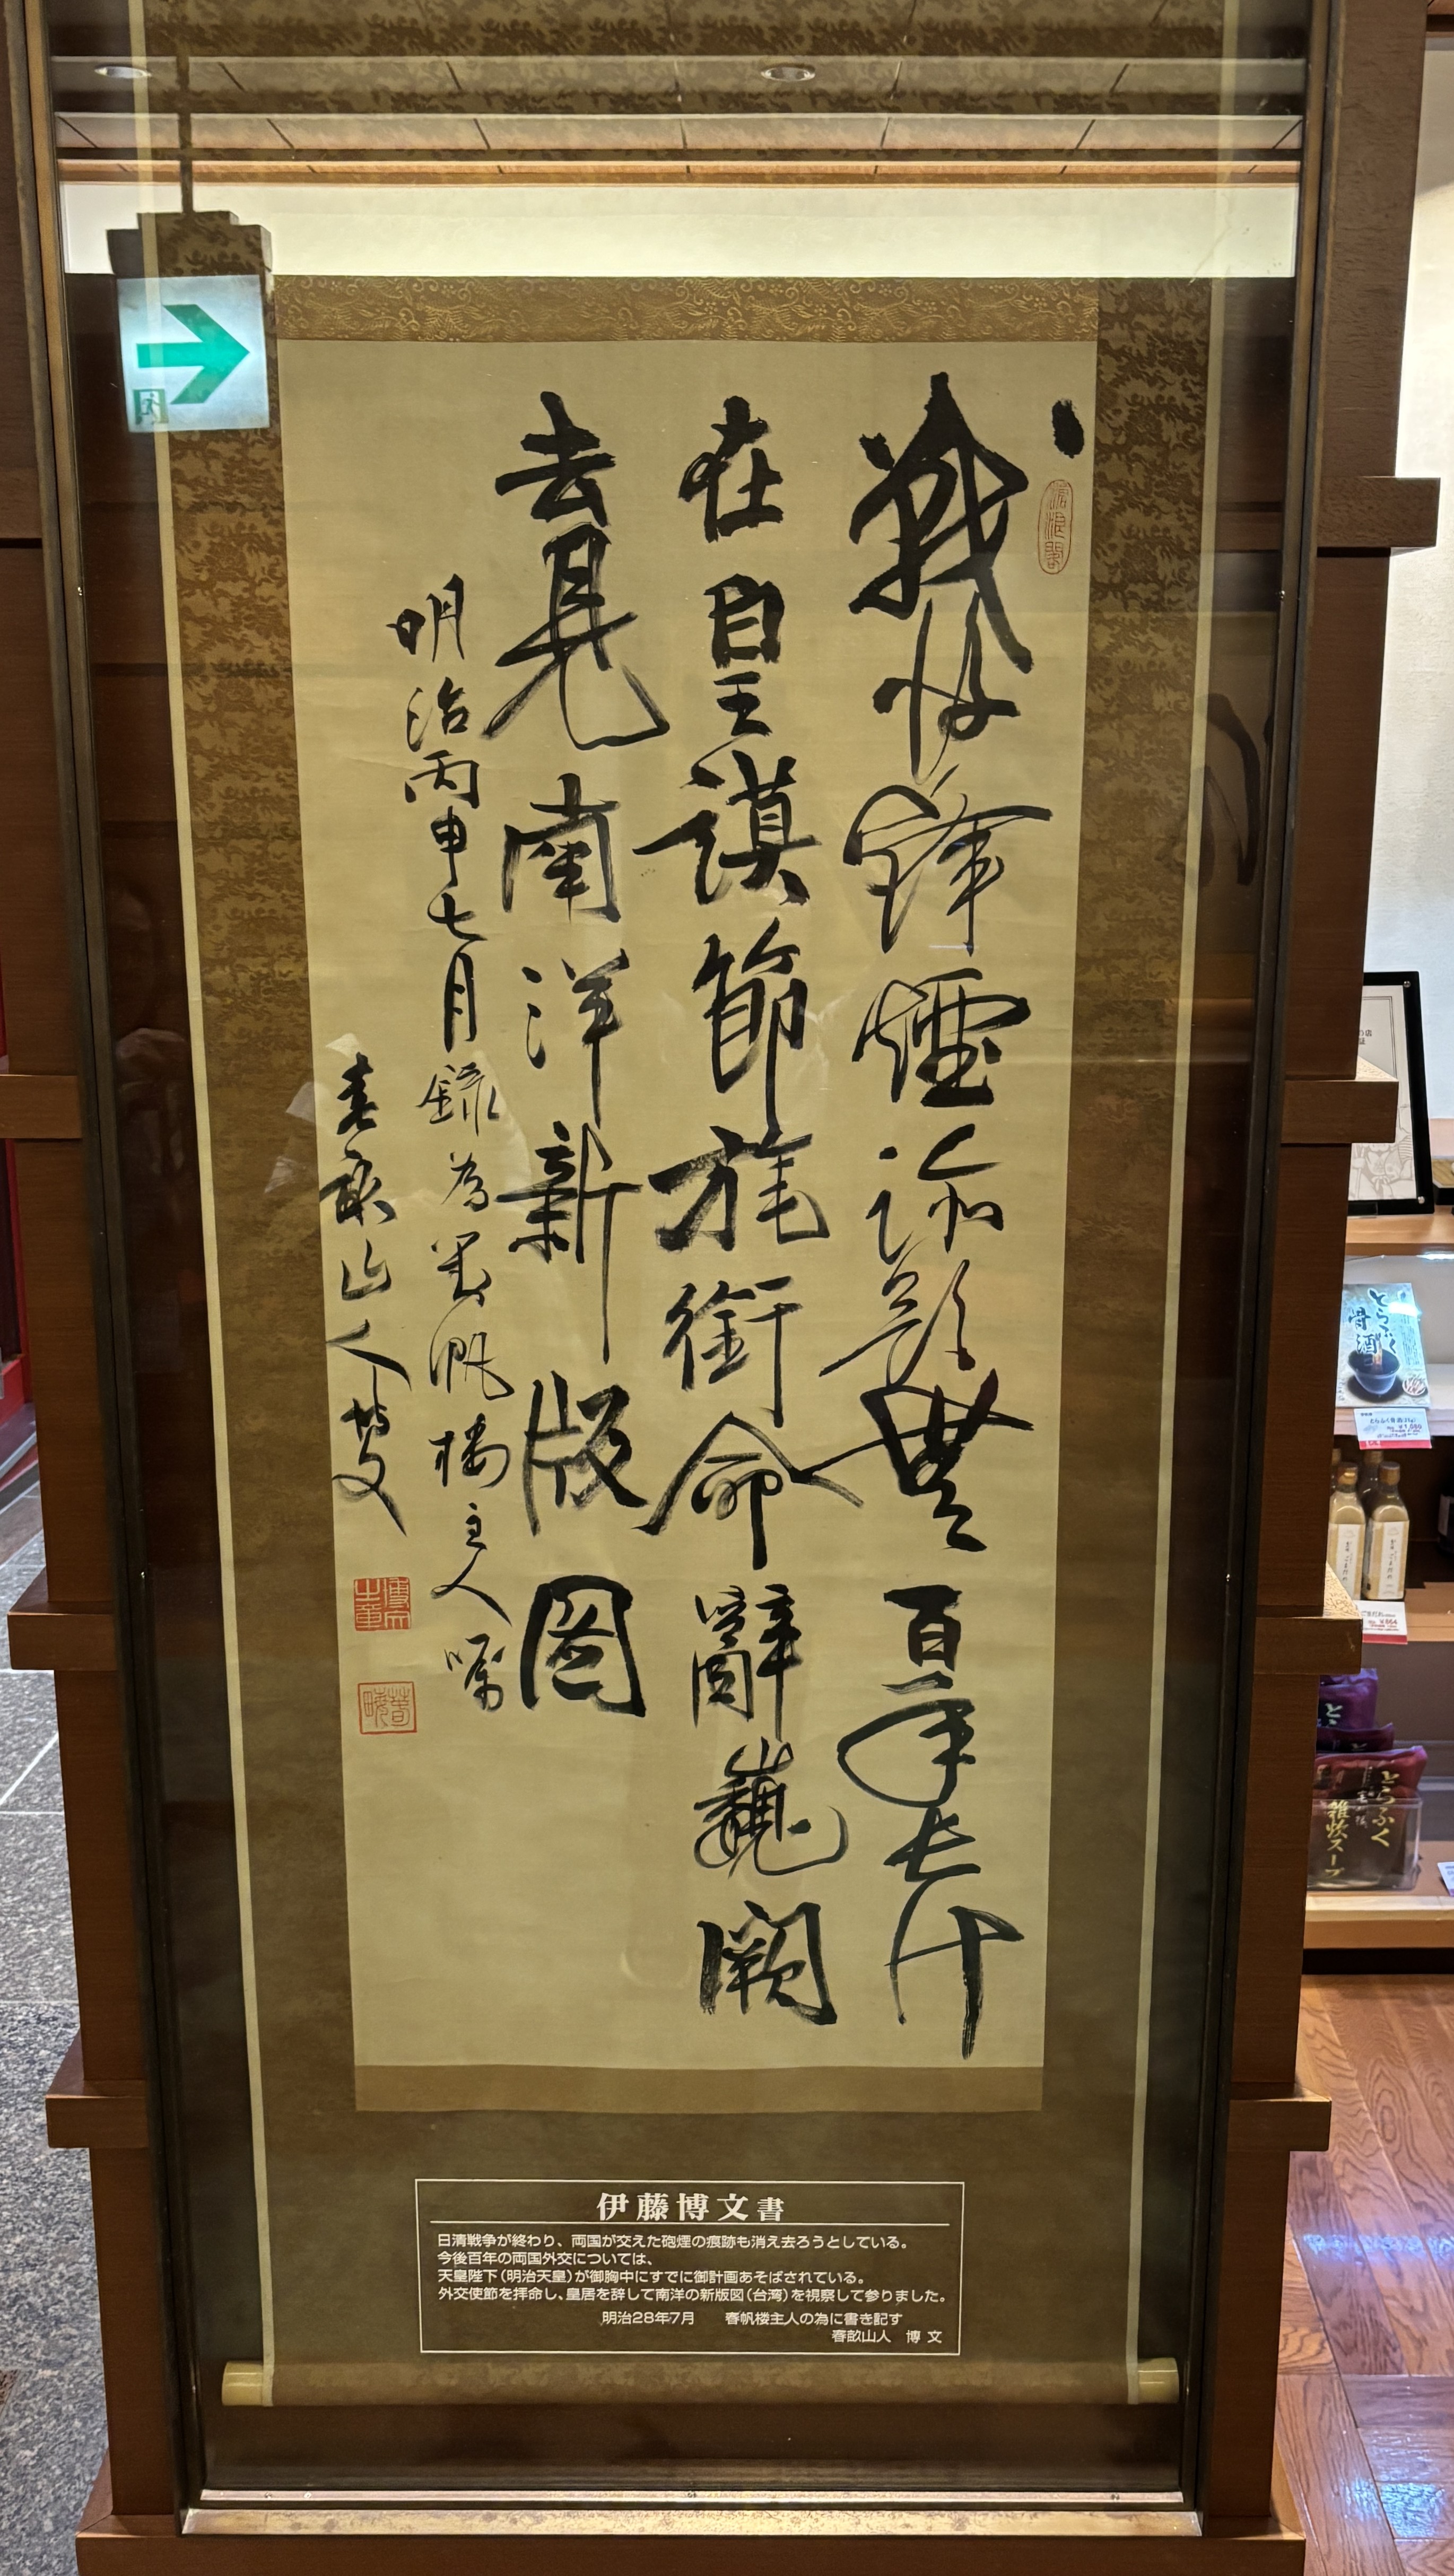 滄浪閣
戰烽煙跡欲無百年長計
在皇謨節旄銜命辭巍闕
去見南洋新版圖
明治丙申七月録為春帆楼主人嘱
春畝山人博文
春畝
伊藤博文書
日清戦争が終わり、両国が交えた砲煙の痕跡も消え去ろうとしている。
今後百年の両国外交については、
天皇陛下(明治天皇)が御胸中にすでに御計画あそばされている。
外交使節を拝命し、皇居を辞して南洋の新版図(台湾)を視察して参りました。
明治28年7月 春帆楼主人の為に書き記す
春畝山人 博文
とらふく
骨酒
¥864
とらふく
雑炊スープ